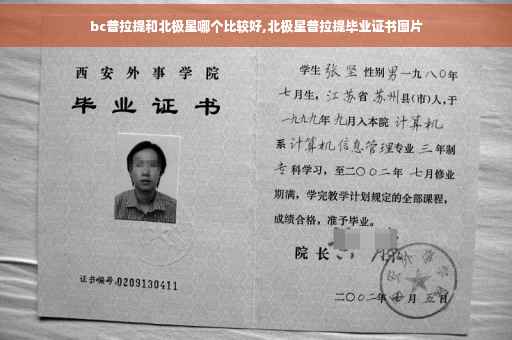 bc普拉提和北极星哪个比较好,北极星普拉提毕业证书图片
西安外事学院
毕业证书
证书编号:0209130411
学生 张坚 性别 男 一九八〇年
七月生, 江苏省 苏州 县(市)人,于
一九九九年 九月入本院 计算机
系 计算机信息管理 专业 三 年制
专 科学习, 至二〇〇二年 七月修业
期满, 学完教学计划规定的全部课程,
成绩合格, 准予毕业。
院长
二〇〇二年 月 五日